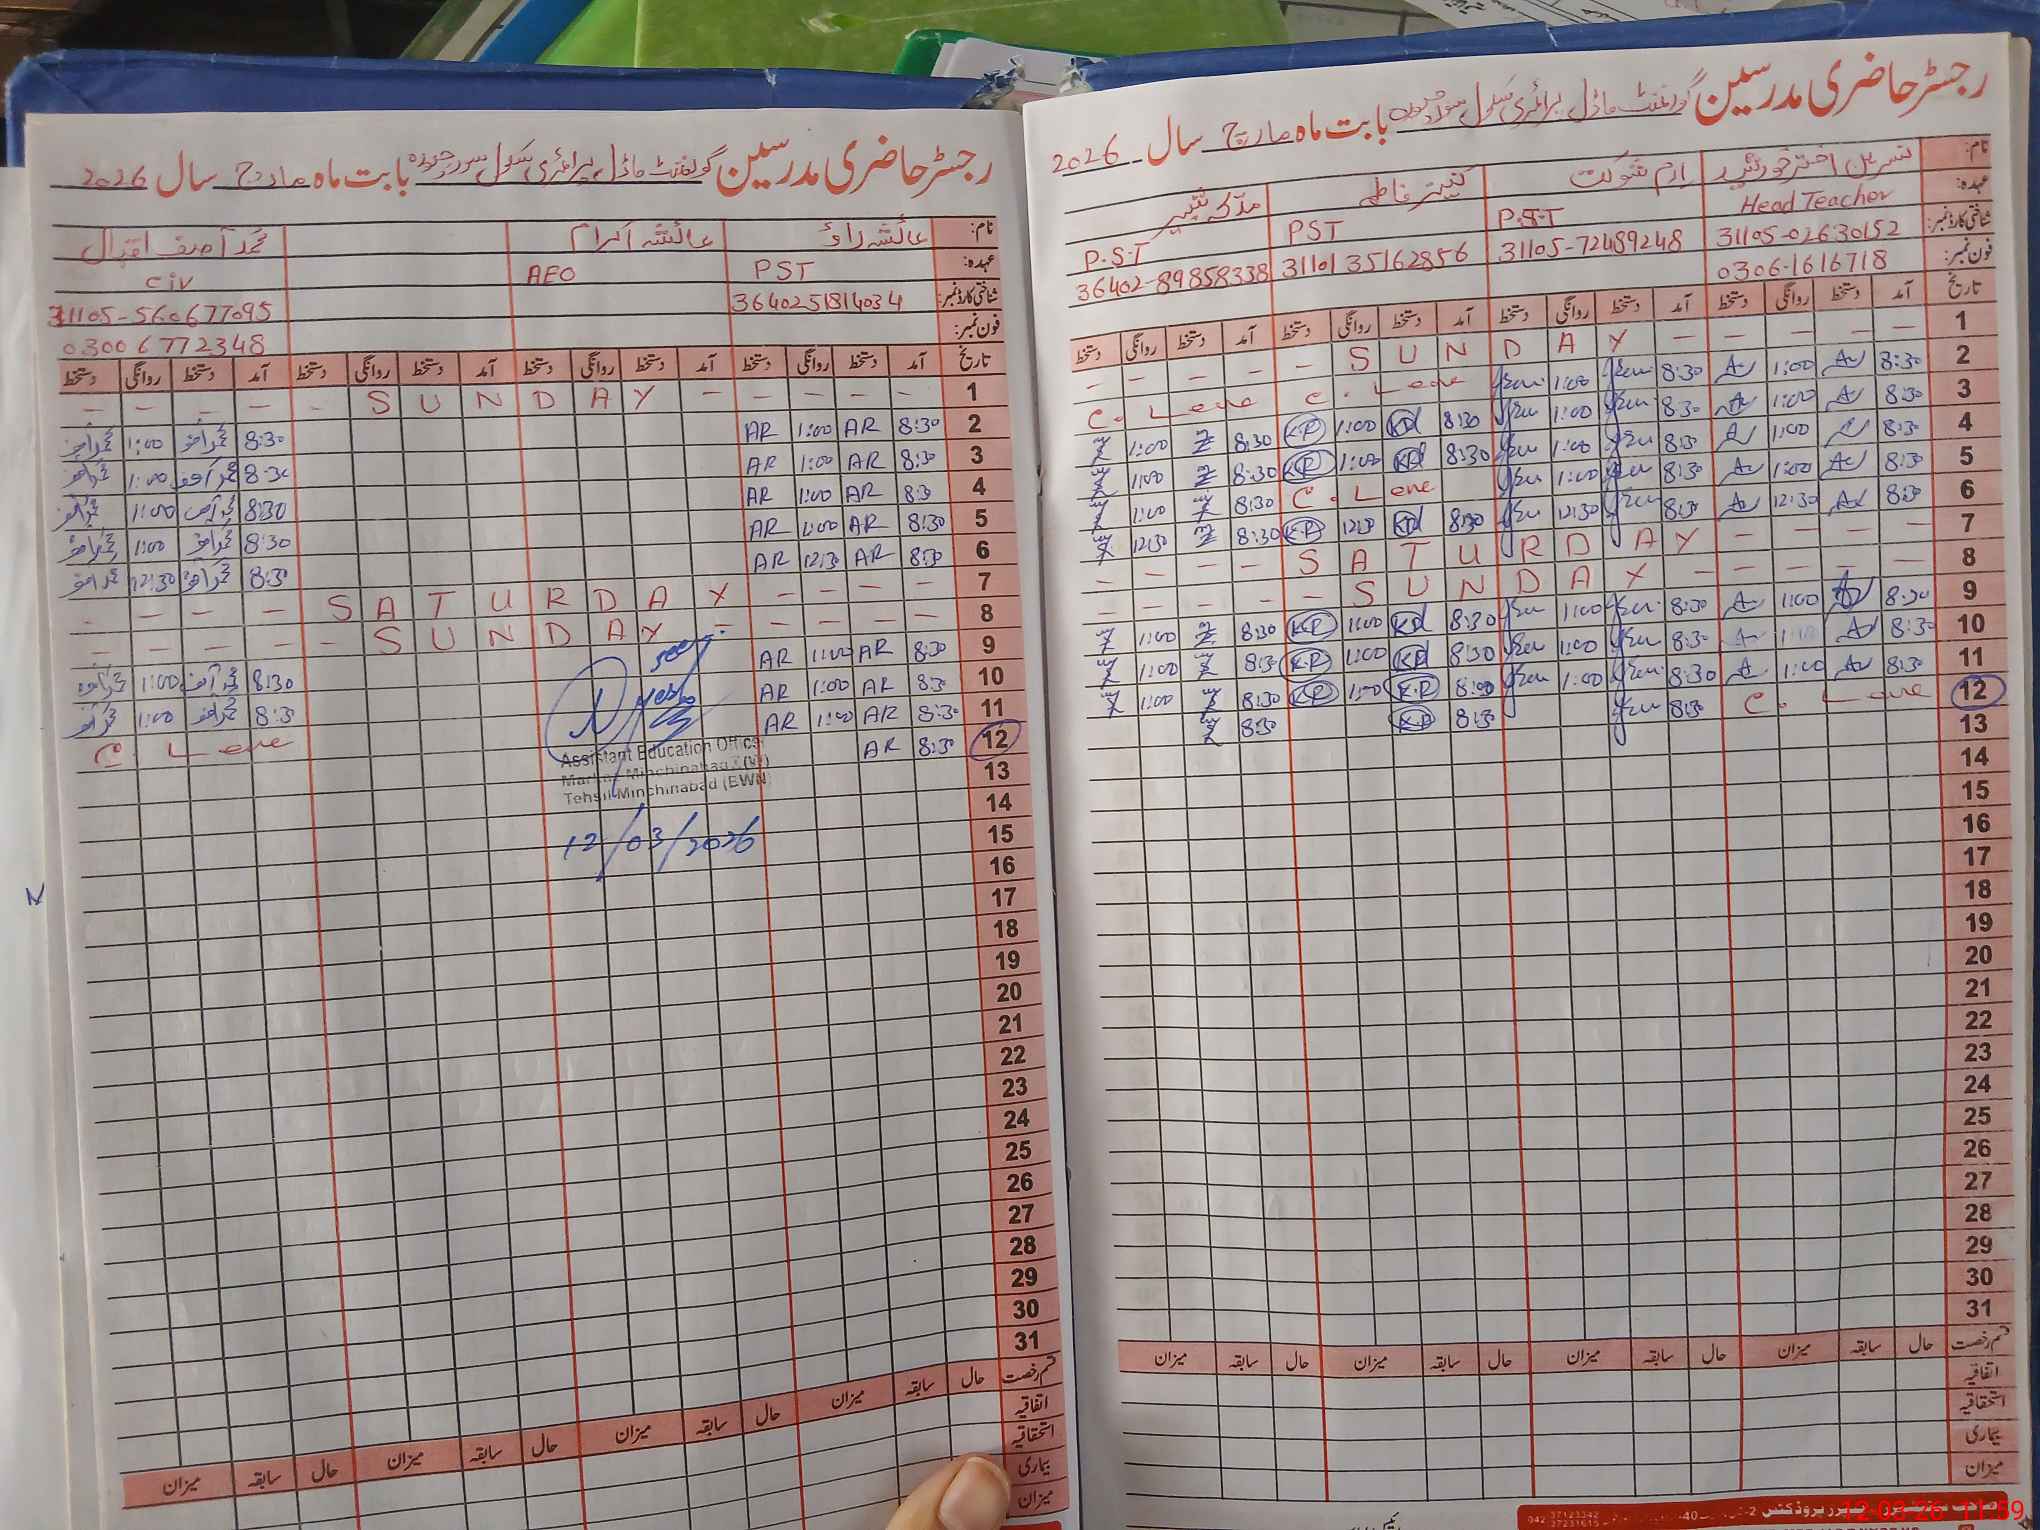 رجسٹر حاضری مدرسین گورنمنٹ ماڈل پرائمری سکول بابت ماہ مارچ سال 2026
نام: عائشہ راؤ عائشہ اکرام محمد آصف اقبال
عہدہ: PST AEO civ
شناختی کارڈ نمبر: 3640251814034 31105-560677095
فون نمبر: 03006772348
تاریخ آمد دستخط روانگی دستخط آمد دستخط روانگی دستخط آمد دستخط روانگی دستخط آمد دستخط روانگی دستخط
1 - - - - - S U N D A Y - - - - -
2 8:30 AR 1:00 AR 8:30 1:00
3 8:30 AR 1:00 AR 8:30 1:00
4 8:30 AR 1:00 AR 8:30 1:00
5 8:30 AR 1:00 AR 8:30 1:00
6 8:30 AR 12:30 AR 8:30 12:30
7 - - - - S A T U R D A Y - - - -
8 - - - - - S U N D A Y - - - - -
9 8:30 AR 1:00 AR 8:30 1:00
10 8:30 AR 1:00 AR 8:30 1:00
11 8:30 AR 1:00 AR C. Leve
12 8:30 AR
Assistant Education Officer
Markaz Minchinabad (W)
Tehsil Minchinabad (EWN)
12/03/2026
13
14
15
16
17
18
19
20
21
22
23
24
25
26
27
28
29
30
31
قسم رخصت حال سابقہ میزان حال سابقہ میزان حال سابقہ میزان حال سابقہ میزان
اتفاقیہ
استحقاقیہ
بیماری
میزان
رجسٹر حاضری مدرسین گورنمنٹ ماڈل پرائمری سکول بابت ماہ مارچ سال 2026
نام: نسرین اختر خورشید ارم شوکت کنیز فاطمہ
عہدہ: Head Teacher P.S.T PST P.S.T
شناختی کارڈ نمبر: 31105-02630152 31105-72489248 31101 35162856 36402-89858338
فون نمبر: 0306-1616718
تاریخ آمد دستخط روانگی دستخط آمد دستخط روانگی دستخط آمد دستخط روانگی دستخط آمد دستخط روانگی دستخط
1 - - - - - S U N D A Y - - - - -
2 8:30 1:00 8:30 1:00 C. Leve C. Leve
3 8:30 1:00 8:30 1:00 8:30 1:00 8:30 1:00
4 8:30 1:00 8:30 1:00 8:30 1:00 8:30 1:00
5 8:30 1:00 8:30 1:00 C. Leve 8:30 1:00
6 8:30 12:30 8:30 12:30 8:30 12:30 8:30 12:30
7 - - - - S A T U R D A Y - - - -
8 - - - - - S U N D A Y - - - - -
9 8:30 1:00 8:30 1:00 8:30 1:00 8:30 1:00
10 8:30 8:30 1:00 8:30 1:00 8:30 1:00
11 8:30 1:00 8:30 1:00 8:00 1:00 8:30 1:00
12 C. Leve 8:30 8:30 8:30
13
14
15
16
17
18
19
20
21
22
23
24
25
26
27
28
29
30
31
قسم رخصت حال سابقہ میزان حال سابقہ میزان حال سابقہ میزان حال سابقہ میزان
اتفاقیہ
استحقاقیہ
بیماری
میزان
042 37123342
12-03-26 11:59